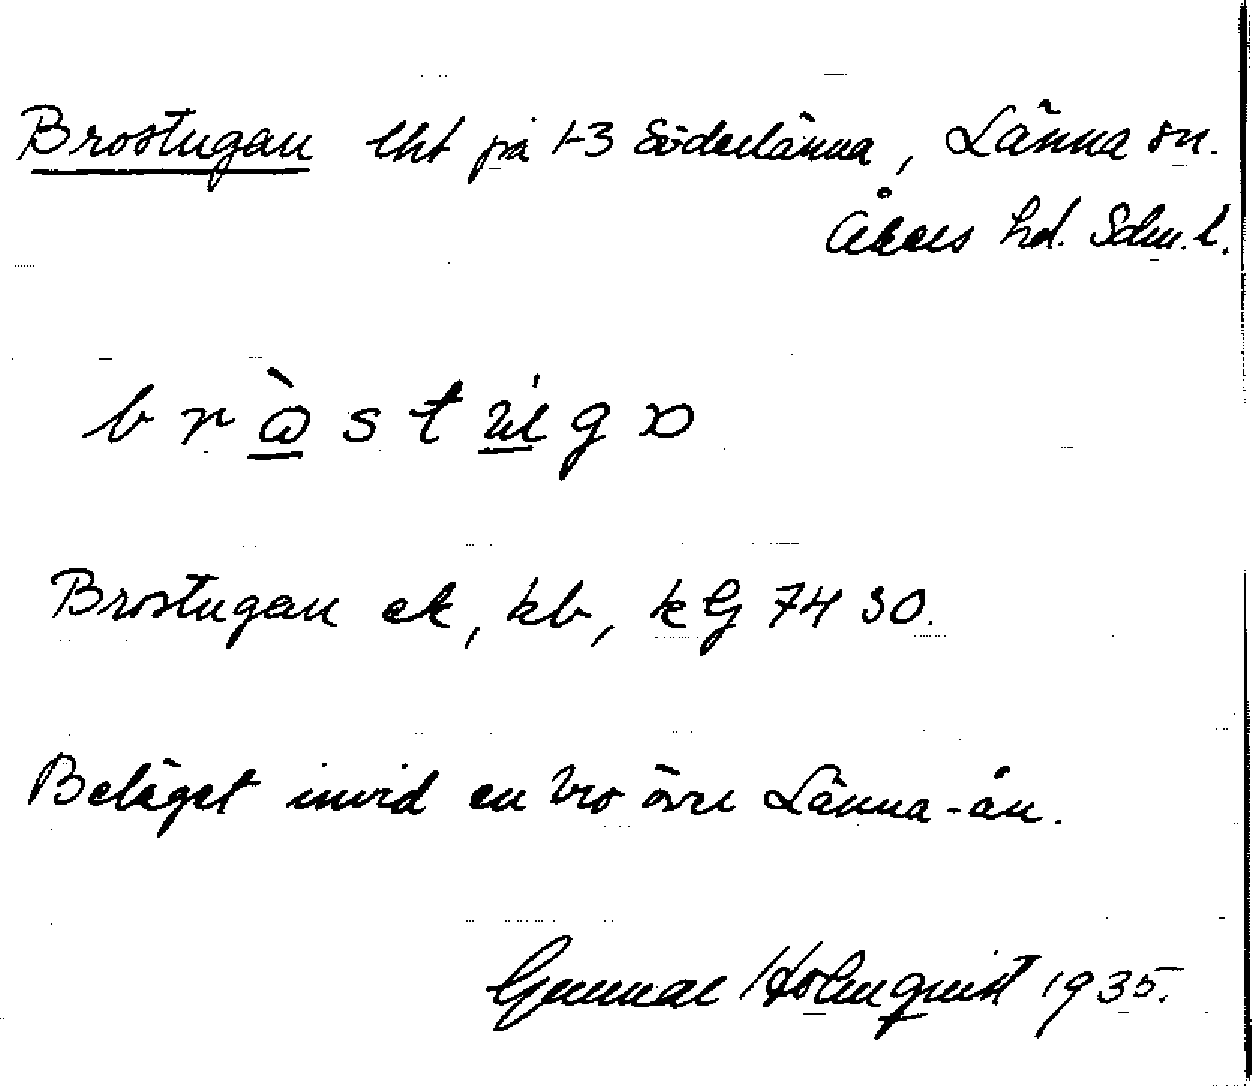 Brostugan lht på 1-3 Söderlänna, Länna sn.
Åkers hd. Sdm. l.
bròstúga
Brostugan ek, kb, kG 74 30.
Beläget invid en bro över Länna-ån.
Gunnar Holmquist 1935.